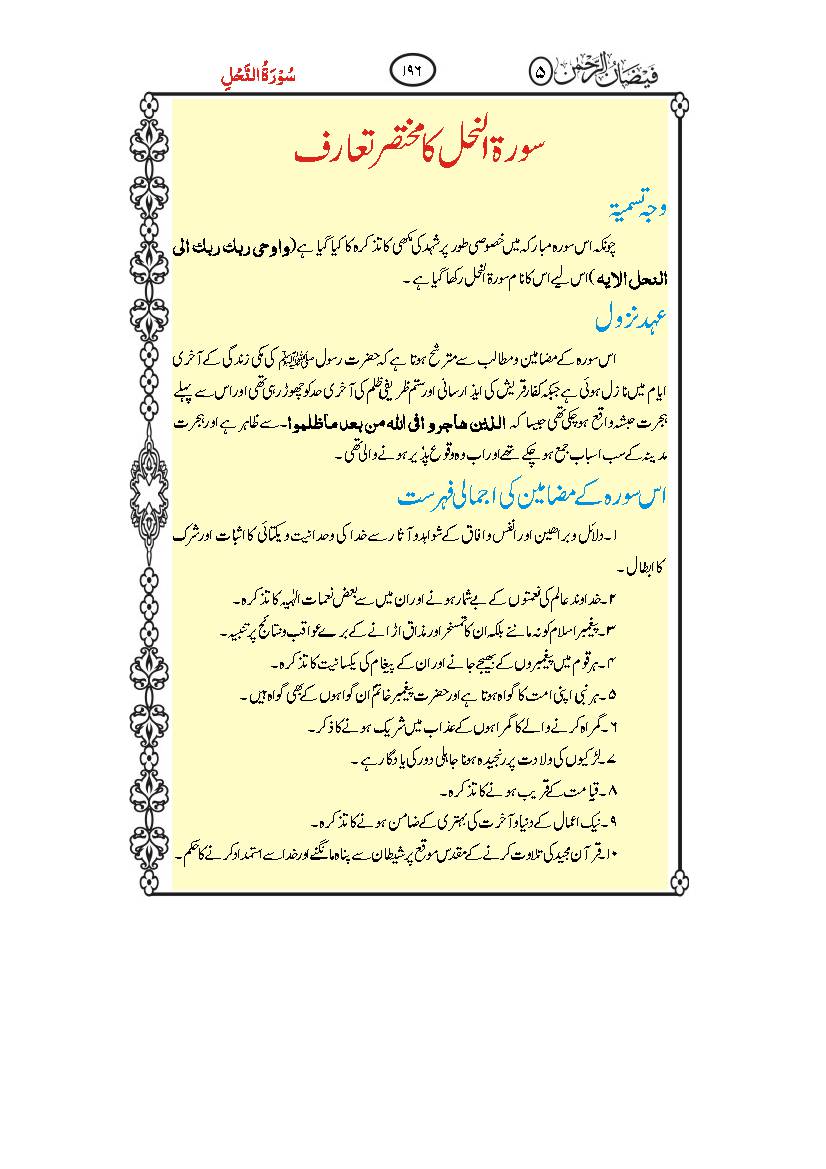 فیضان الرحمٰن ۵
۱۹۶
سُوْرَةُ النَّحْلِ
سورۃ النحل کا مختصر تعارف
وجہ تسمیۃ
چونکہ اس سورہ مبارکہ میں خصوصی طور پر شہد کی مکھی کا تذکرہ کیا گیا ہے (واوحی ربك ربك الی
النحل الایه) اس لیے اس کا نام سورۃ النحل رکھا گیا ہے ۔
عہد نزول
اس سورہ کے مضامین و مطالب سے مترشح ہوتا ہے کہ حضرت رسول ﷺ کی مکی زندگی کے آخری
ایام میں نازل ہوئی ہے جبکہ کفار قریش کی ایذ ارسانی اور ستم ظریفی ظلم کی آخری حد کو چھوڑ رہی تھی اور اس سے پہلے
ہجرت حبشہ واقع ہو چکی تھی جیسا کہ الذین هاجرو افی الله من بعد ماظلموا۔ سے ظاہر ہے اور ہجرت
مدینہ کے سب اسباب جمع ہو چکے تھے اور اب وہ وقوع پذیر ہونے والی تھی ۔
اس سورہ کے مضامین کی اجمالی فہرست
۱۔ دلائل و براھین اور انفس و افاق کے شواہد و آثار سے خدا کی وحدانیت و یکتائی کا اثبات اور شرک
کا ابطال ۔
۲۔ خداوند عالم کی نعمتوں کے بے شمار ہونے اور ان میں سے بعض نعمات الٰہیہ کا تذکرہ ۔
۳۔ پیغمبر اسلام کو نہ ماننے بلکہ ان کا تمسخر اور مذاق اڑانے کے برے عواقب و نتائج پر تنبیہ ۔
۴۔ ہر قوم میں پیغمبروں کے بھیجے جانے اور ان کے پیغام کی یکسانیت کا تذکرہ ۔
۵۔ ہر نبی اپنی امت کا گواہ ہوتا ہے اور حضرت پیغمبر خاتمؐ ان گواہوں کے بھی گواہ ہیں ۔
۶۔ گمراہ کرنے والے کا گمراہوں کے عذاب میں شریک ہونے کا ذکر ۔
۷۔ لڑکیوں کی ولادت پر رنجیدہ ہونا جاہلی دور کی یادگار ہے ۔
۸۔ قیامت کے قریب ہونے کا تذکرہ ۔
۹۔ نیک اعمال کے دنیا و آخرت کی بہتری کے ضامن ہونے کا تذکرہ ۔
۱۰۔ قرآن مجید کی تلاوت کرنے کے مقدس موقع پر شیطان سے پناہ مانگنے اور خدا سے استمداد کرنے کا حکم ۔